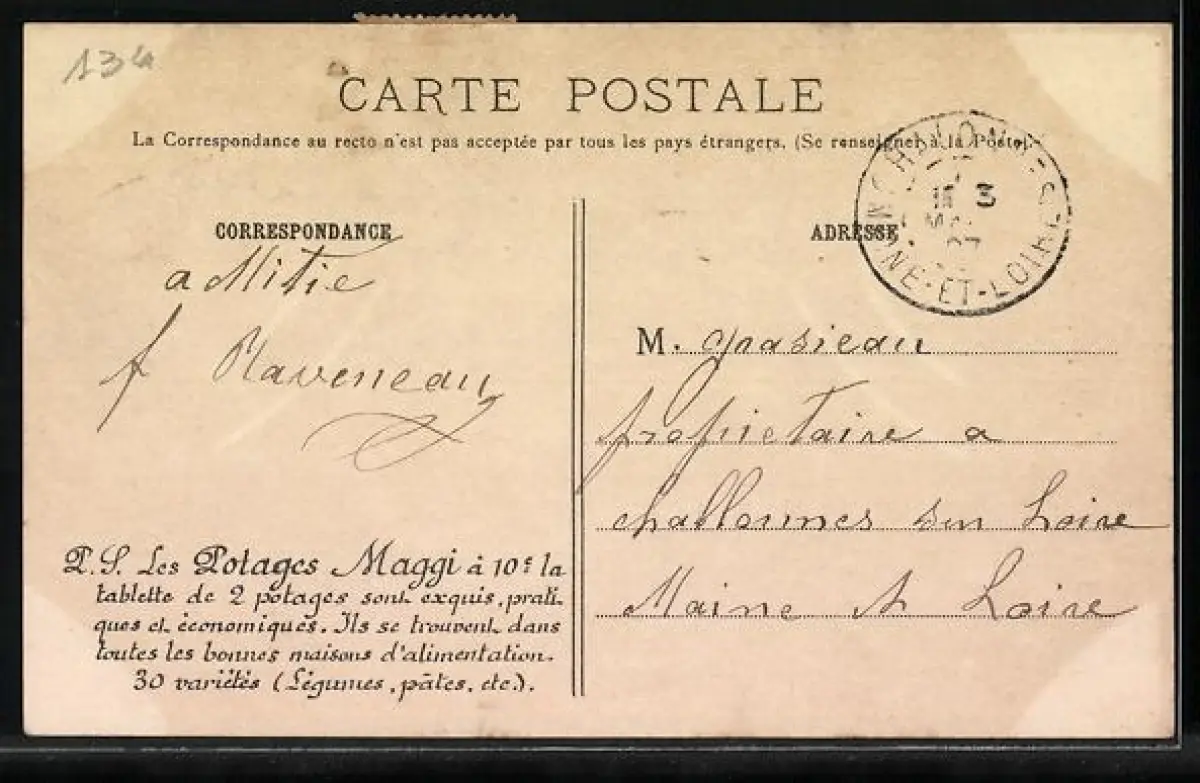 134
CARTE POSTALE
La Correspondance au recto n'est pas acceptée par tous les pays étrangers. (Se renseigner à la Poste).
CORRESPONDANCE
a Mitié
f Raveneau
P.S. Les Potages Maggi à 10c la
tablette de 2 potages sont exquis, prati-
ques et économiques. Ils se trouvent dans
toutes les bonnes maisons d'alimentation.
30 variétés (Légumes, pâtes, etc.).
ADRESSE
3
07
MAINE-ET-LOIRE
M. Grasieau
propietaire a
challonnes sur Loire
Maine et Loire